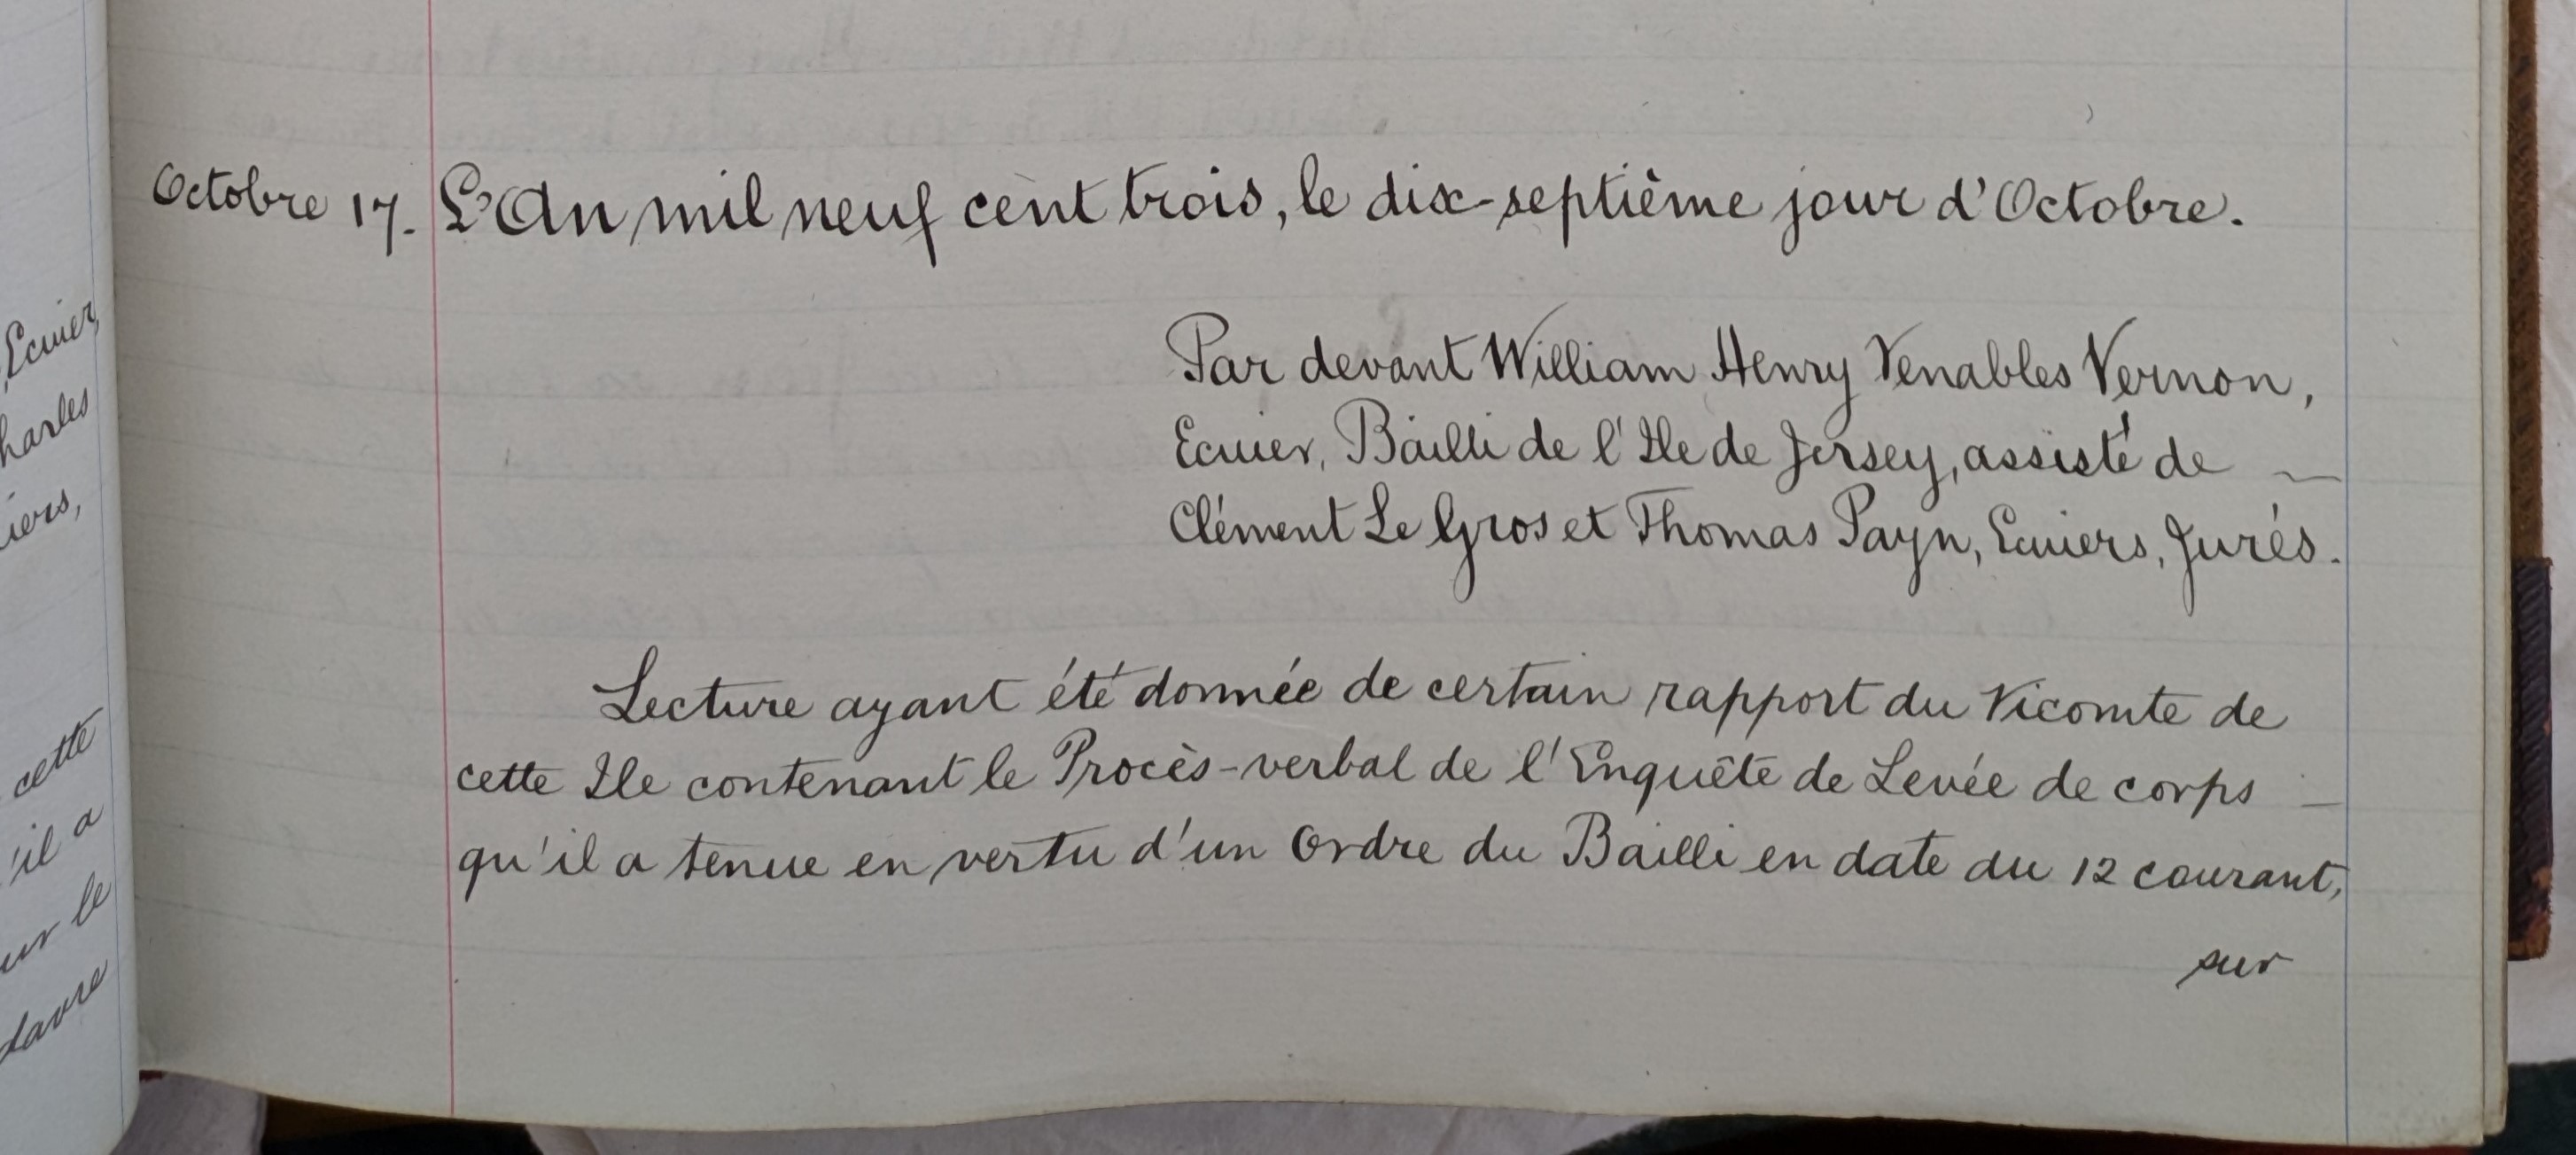 Ecuier,
harles
iers,
cette
'il a
ur le
davre
Octobre 17. L'An mil neuf cent trois, le dix-septième jour d'Octobre.
Par devant William Henry Venables Vernon,
Ecuier, Bailli de l'Ile de Jersey, assisté de
Clément Le Gros et Thomas Payn, Ecuiers, Jurés.
Lecture ayant été donnée de certain rapport du Vicomte de
cette Ile contenant le Procès-verbal de l'Enquête de Levée de corps
qu'il a tenue en vertu d'un Ordre du Bailli en date du 12 courant,
sur